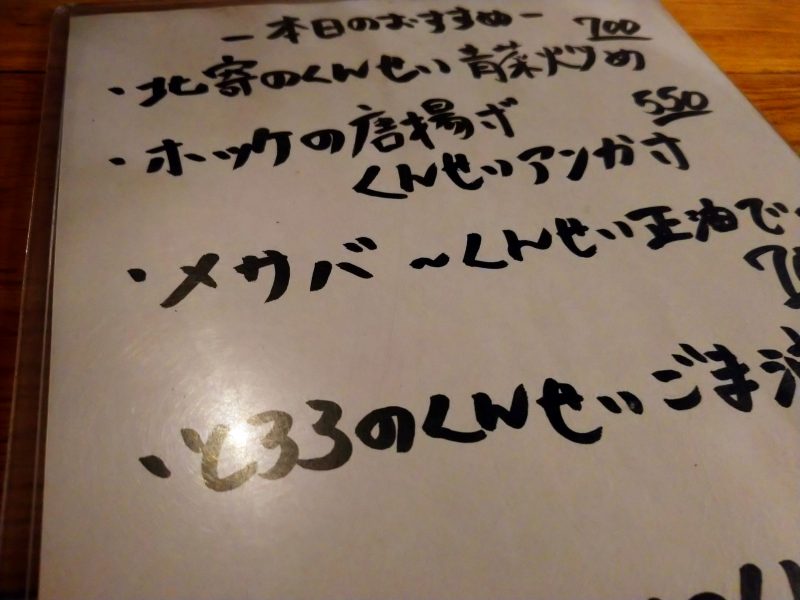 －本日のおすすめ－
700
・北寄のくんせい 青菜炒め
550
・ホッケの唐揚げ
くんせいアンカサ
・メサバ 〜くんせい正油で
7
・とろろのくんせいごま油